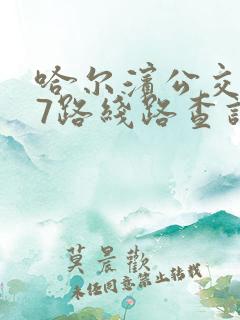 哈尔滨公交
7路线路查询
莫晨欢
未经同意禁止转载